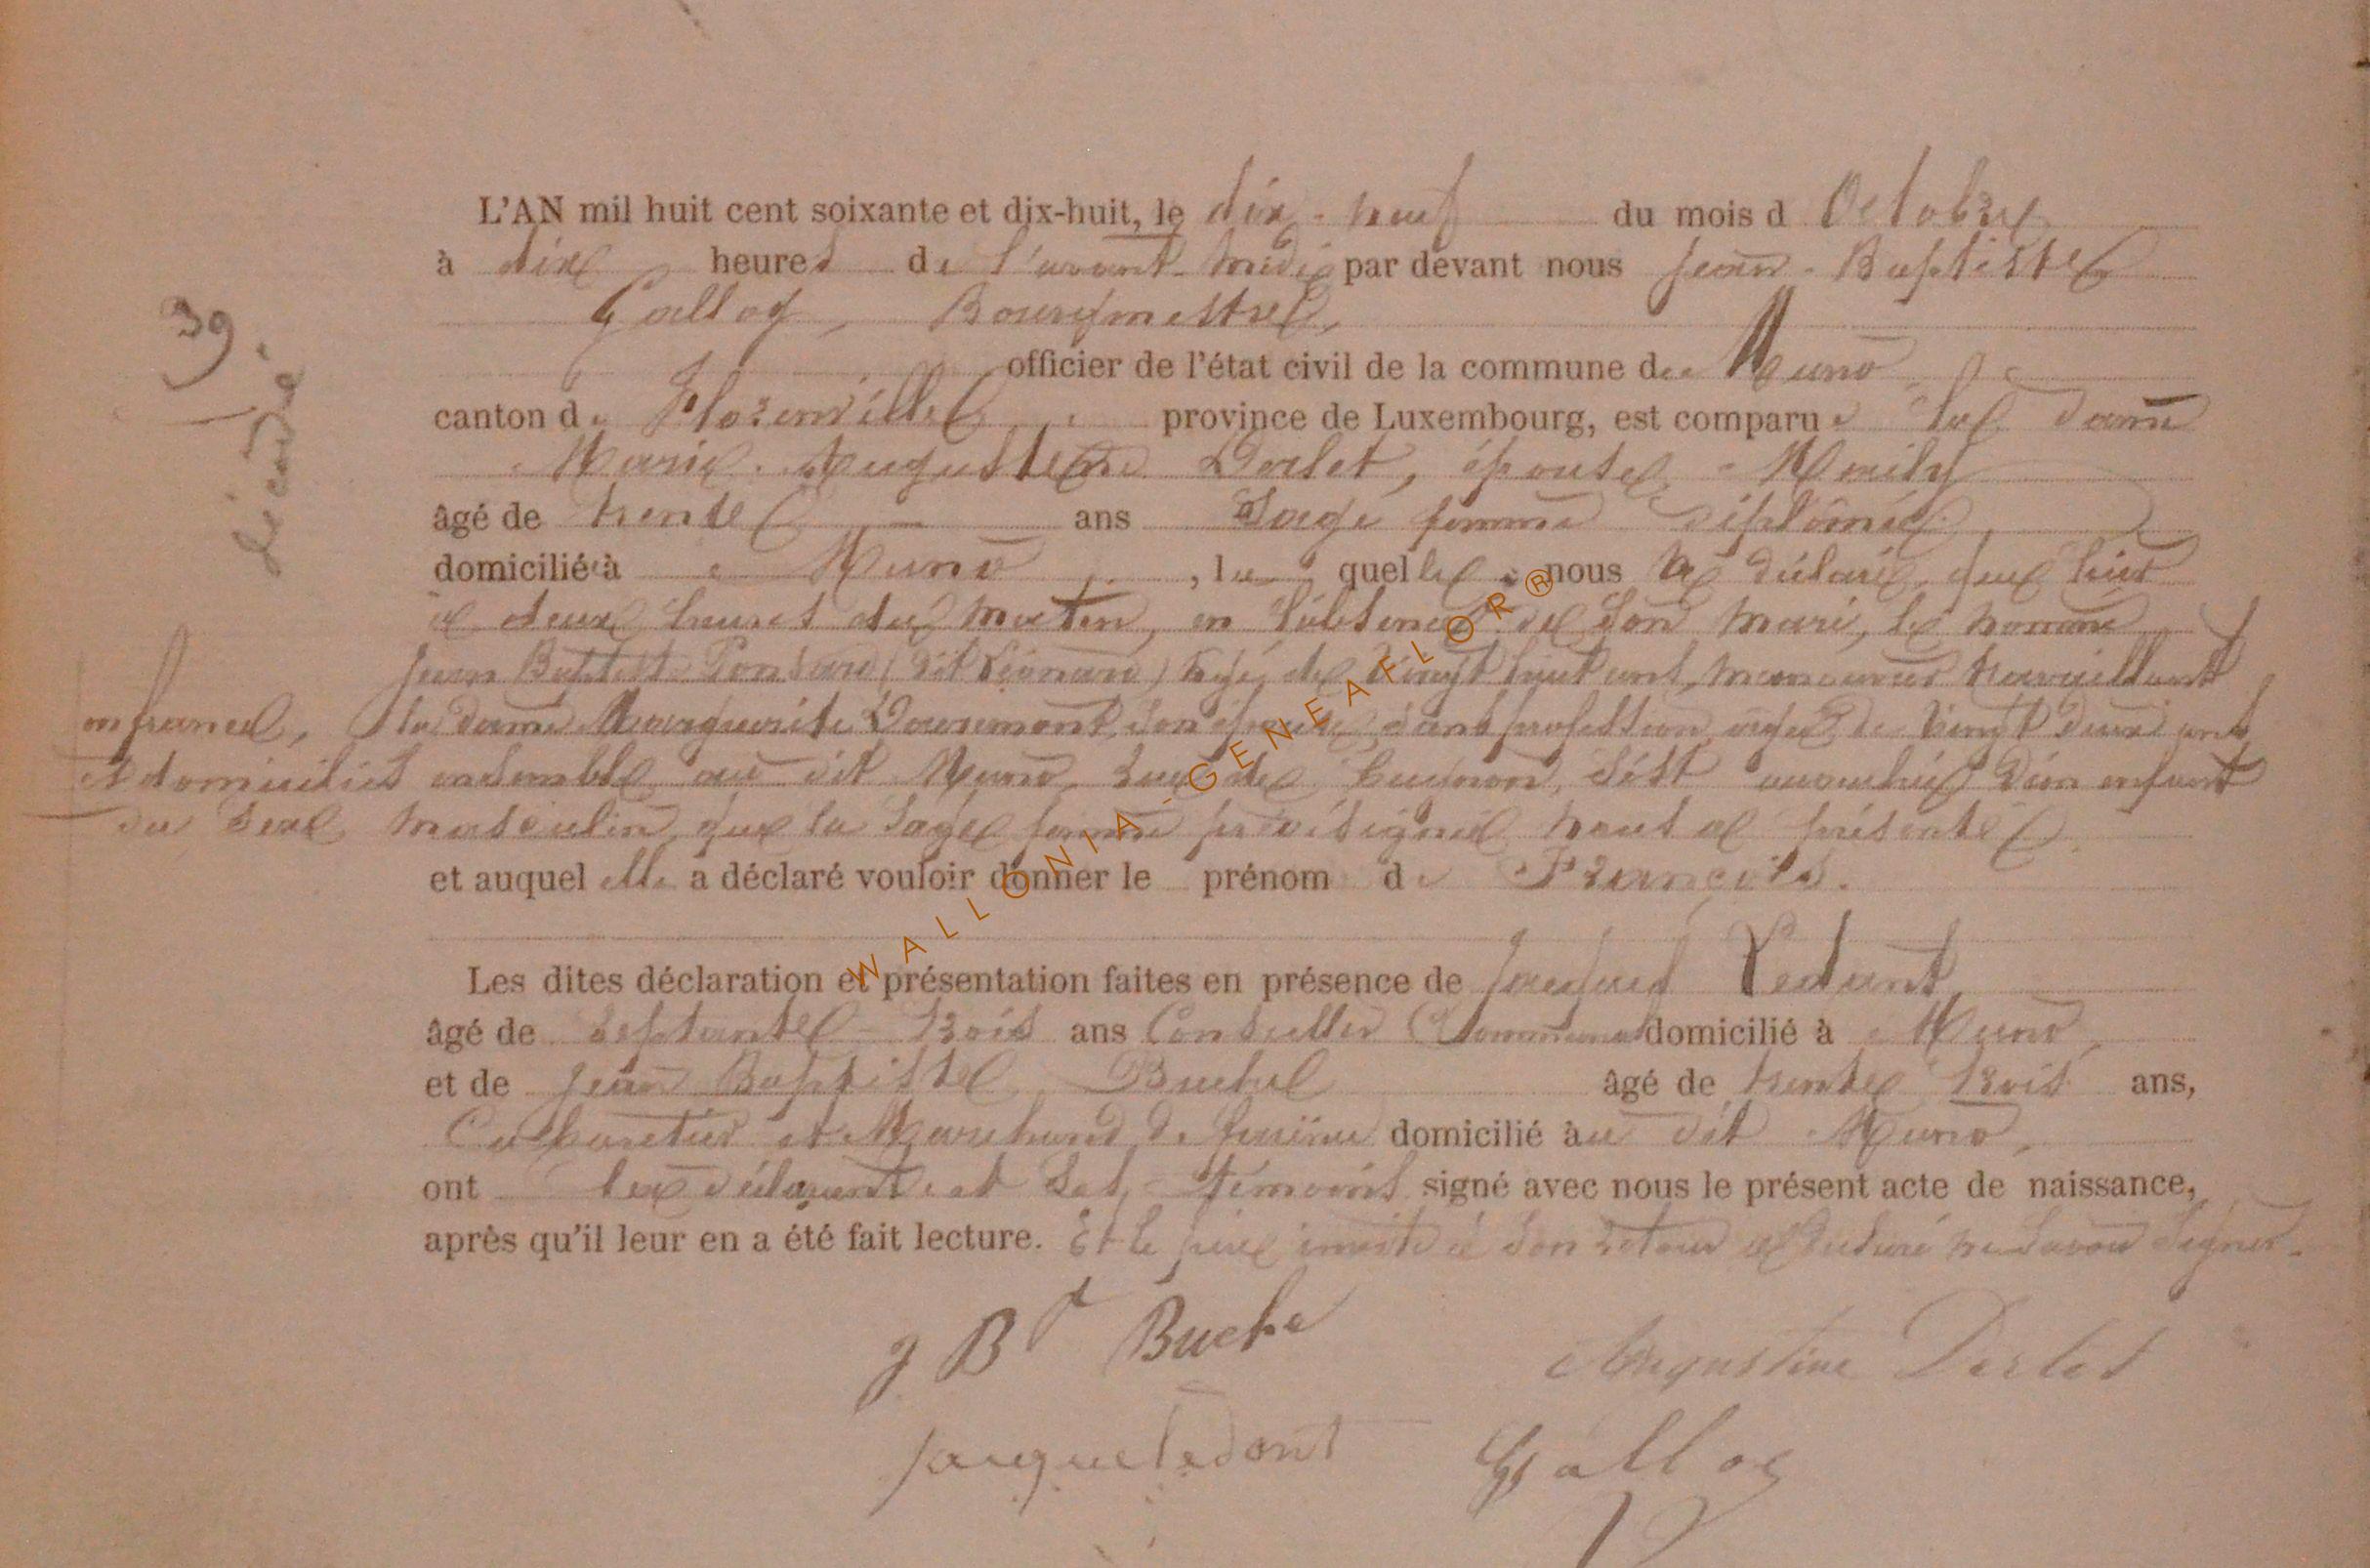 39
décédé
L'AN mil huit cent soixante et dix-huit, le dix-neuf du mois d Octobre
à dix heures de l'avant-midi par devant nous Jean-Baptiste
Bourgmestre,
officier de l'état civil de la commune de Muno
canton de Florenville province de Luxembourg, est comparue la dame
Marie Augustine Dorlet, épouse
âgé de trente ans Sage femme diplômée
domiciliée à Muno, laquelle nous a déclaré, que hier
à deux heures du matin, en l'absence de son mari, le nommé
Jean Baptiste Ponsard (dit Léonard) âgé de vingt huit ans, manoeuvre travaillant
en france, la dame Marguerite son épouse, sans profession, âgée de vingt deux ans
et domiciliés ensemble au dit Muno, rue de s'est accouchée d'un enfant
du sexe masculin, que la sage femme présignée nous a présenté
et auquel elle a déclaré vouloir donner le prénom de François.
Les dites déclaration et présentation faites en présence de Jacques Ledant
âgé de septante trois ans Conseiller Communal domicilié à Muno
et de Jean Baptiste Buche âgé de trente trois ans,
Cabaretier et Marchand de farine domicilié au dit Muno,
ont la déclarante et les témoins signé avec nous le présent acte de naissance,
après qu'il leur en a été fait lecture. Et le père invité à son retour a déclaré ne savoir signer.
J Bt Buche
Augustine Dorlet
Jacque Ledant
WALLONIA-GENEAFLOR®